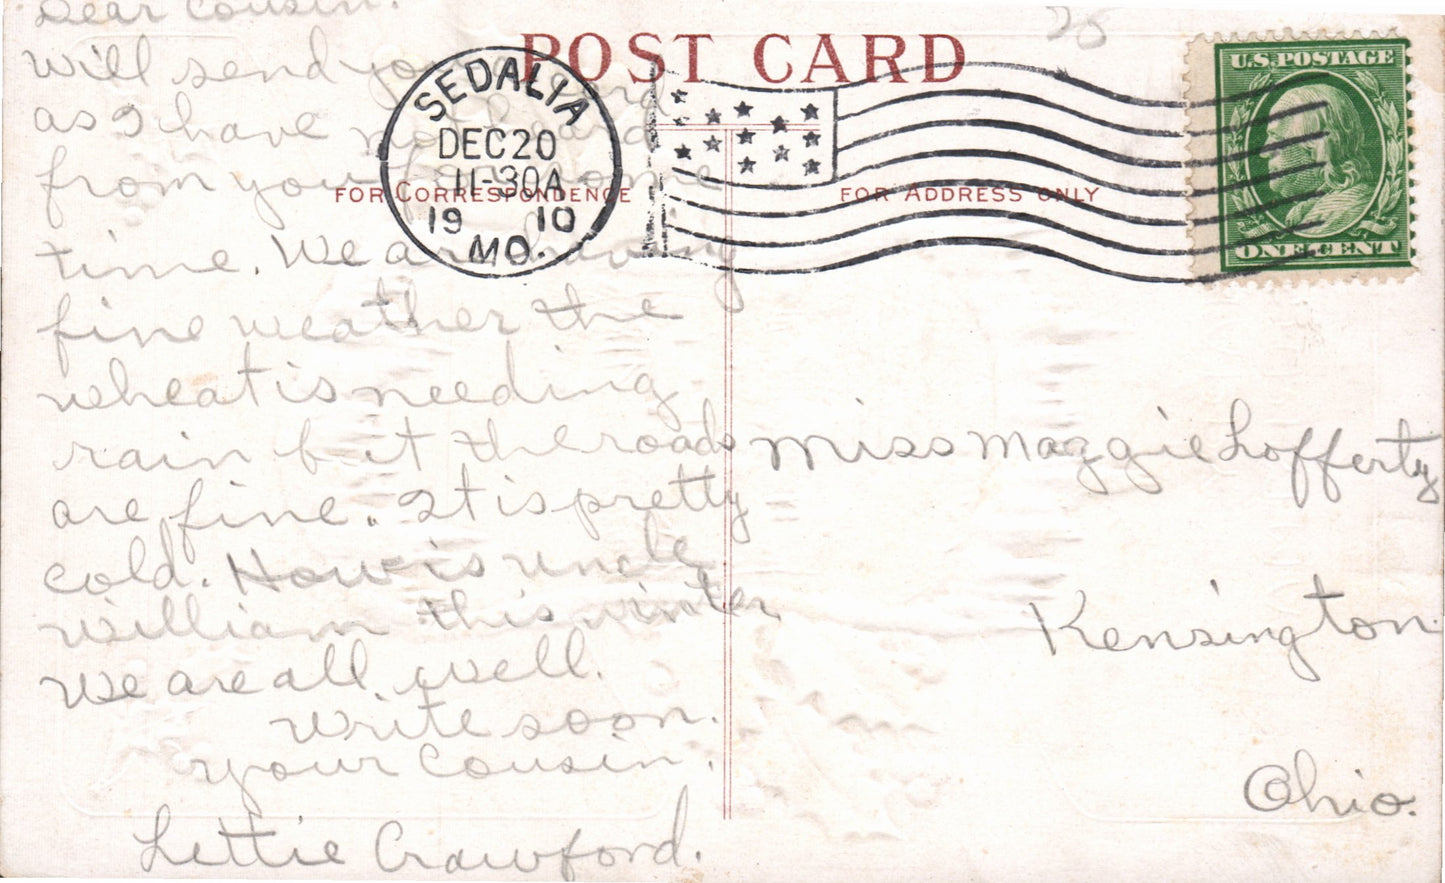 Dear Cousin.
will send you a card
as I have not heard
from you for some
time. We are having
fine weather the
wheat is needing
rain but the roads
are fine. It is pretty
cold. How is uncle
William this winter
We are all well.
Write soon.
your Cousin.
Lettie Crawford.
POST CARD
FOR CORRESPONDENCE
FOR ADDRESS ONLY
SEDALIA
DEC 20
11-30A
19 10
MO.
28
U.S. POSTAGE
ONE CENT
Miss Maggie Lofferty
Kensington
Ohio.